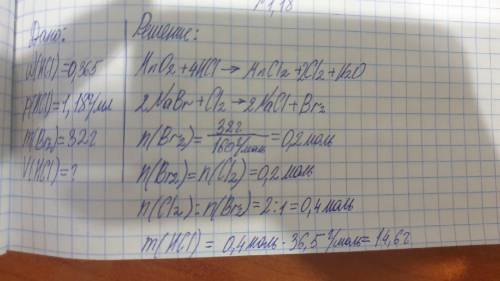 Дано:
W(HCl)=0,365
ρ(HCl)=1,18г/мл
m(Br2)=32г
V(HCl)=?
Решение:
MnO2+4HCl→MnCl2+Cl2+H2O
2NaBr+Cl2→2NaCl+Br2
n(Br2)=32г/160г/моль=0,2моль
n(Br2)=n(Cl2)=0,2моль
n(Cl2):n(Br2)=2:1=0,4моль
m(HCl) = 0,4моль·36,5г/моль=14,6г